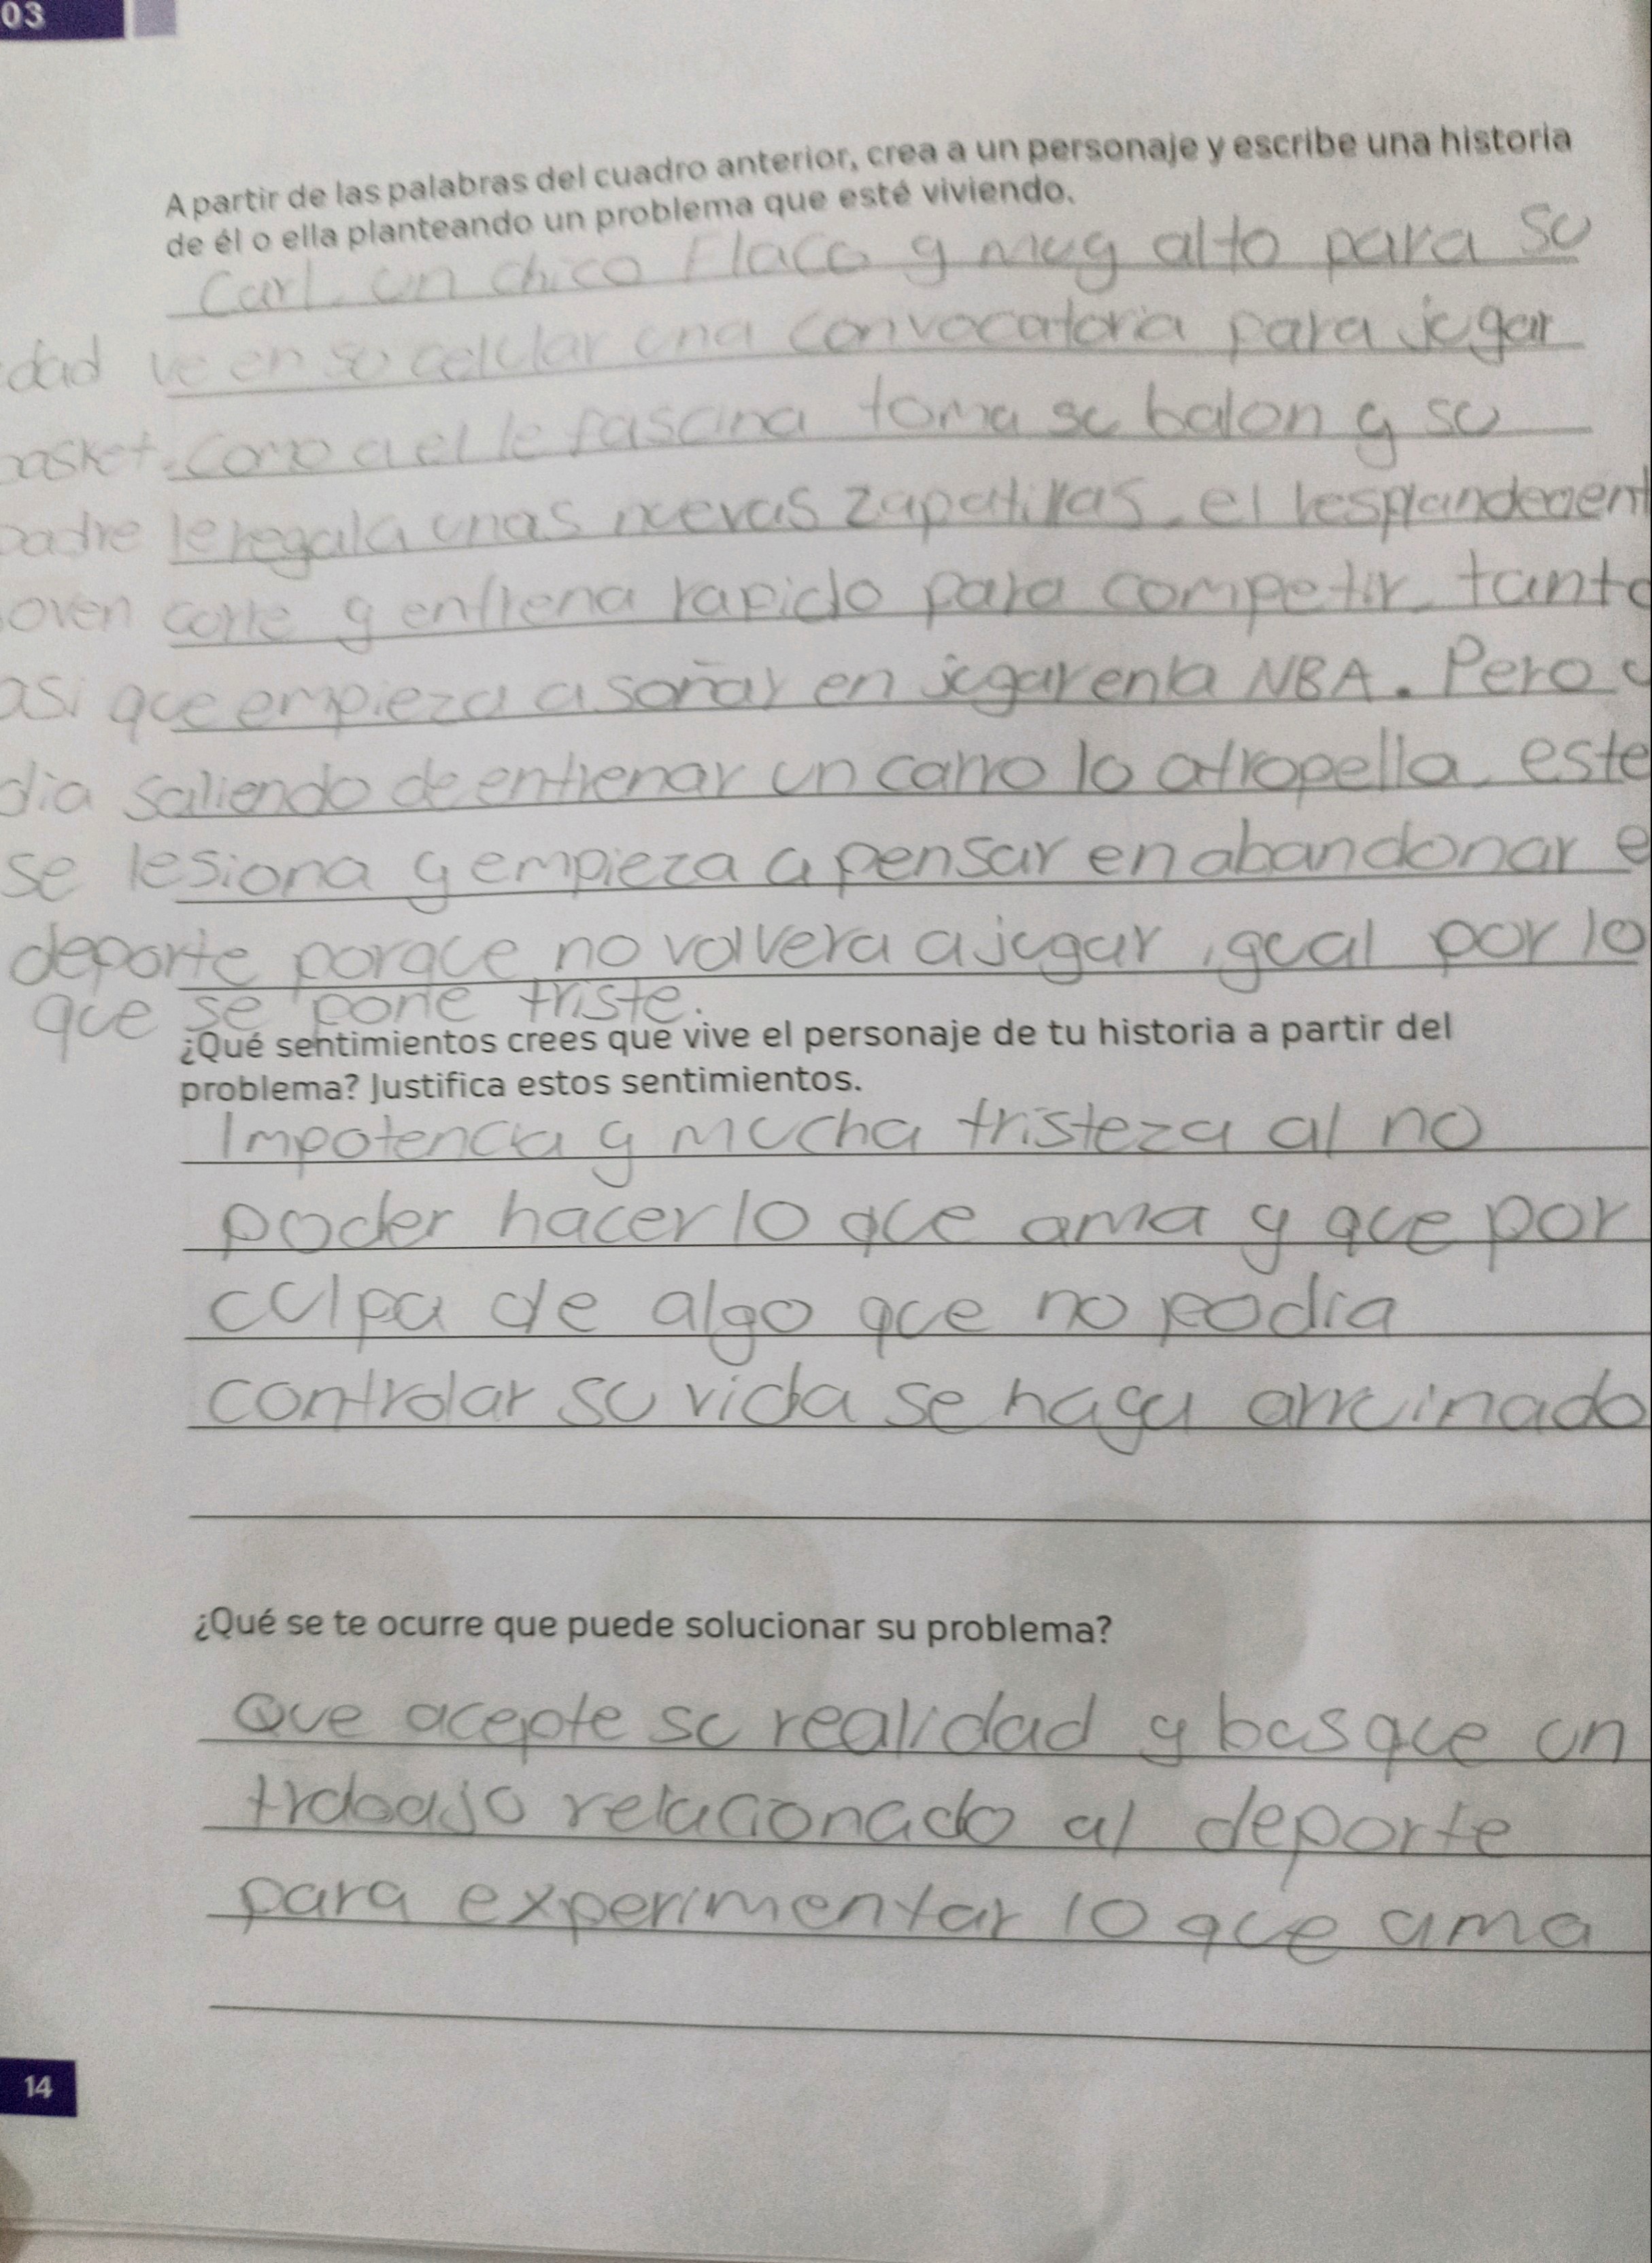 03
A partir de las palabras del cuadro anterior, crea a un personaje y escribe una historia
de él o ella planteando un problema que esté viviendo.
Carl, un chico Flaco y muy alto para su
dad ve en su celular una convocatoria para jugar
basket, como a el le fascina toma su balon y su
padre le regala unas nuevas zapatillas. el resplandecent
oven corre y entrena rapido para competir, tanto
asi que empieza a soñar en jugar en la NBA. Pero
dia saliendo de entrenar un carro lo atropella, este
se lesiona y empieza a pensar en abandonar e
deporte porque no volvera a jugar igual por lo
que se pone triste.
¿Qué sentimientos crees que vive el personaje de tu historia a partir del
problema? Justifica estos sentimientos.
Impotencia y mucha tristeza al no
poder hacer lo que ama y que por
culpa de algo que no podia
controlar su vida se haya arruinado
¿Qué se te ocurre que puede solucionar su problema?
Que acepte su realidad y busque un
trabajo relacionado al deporte
para experimentar lo que ama
14